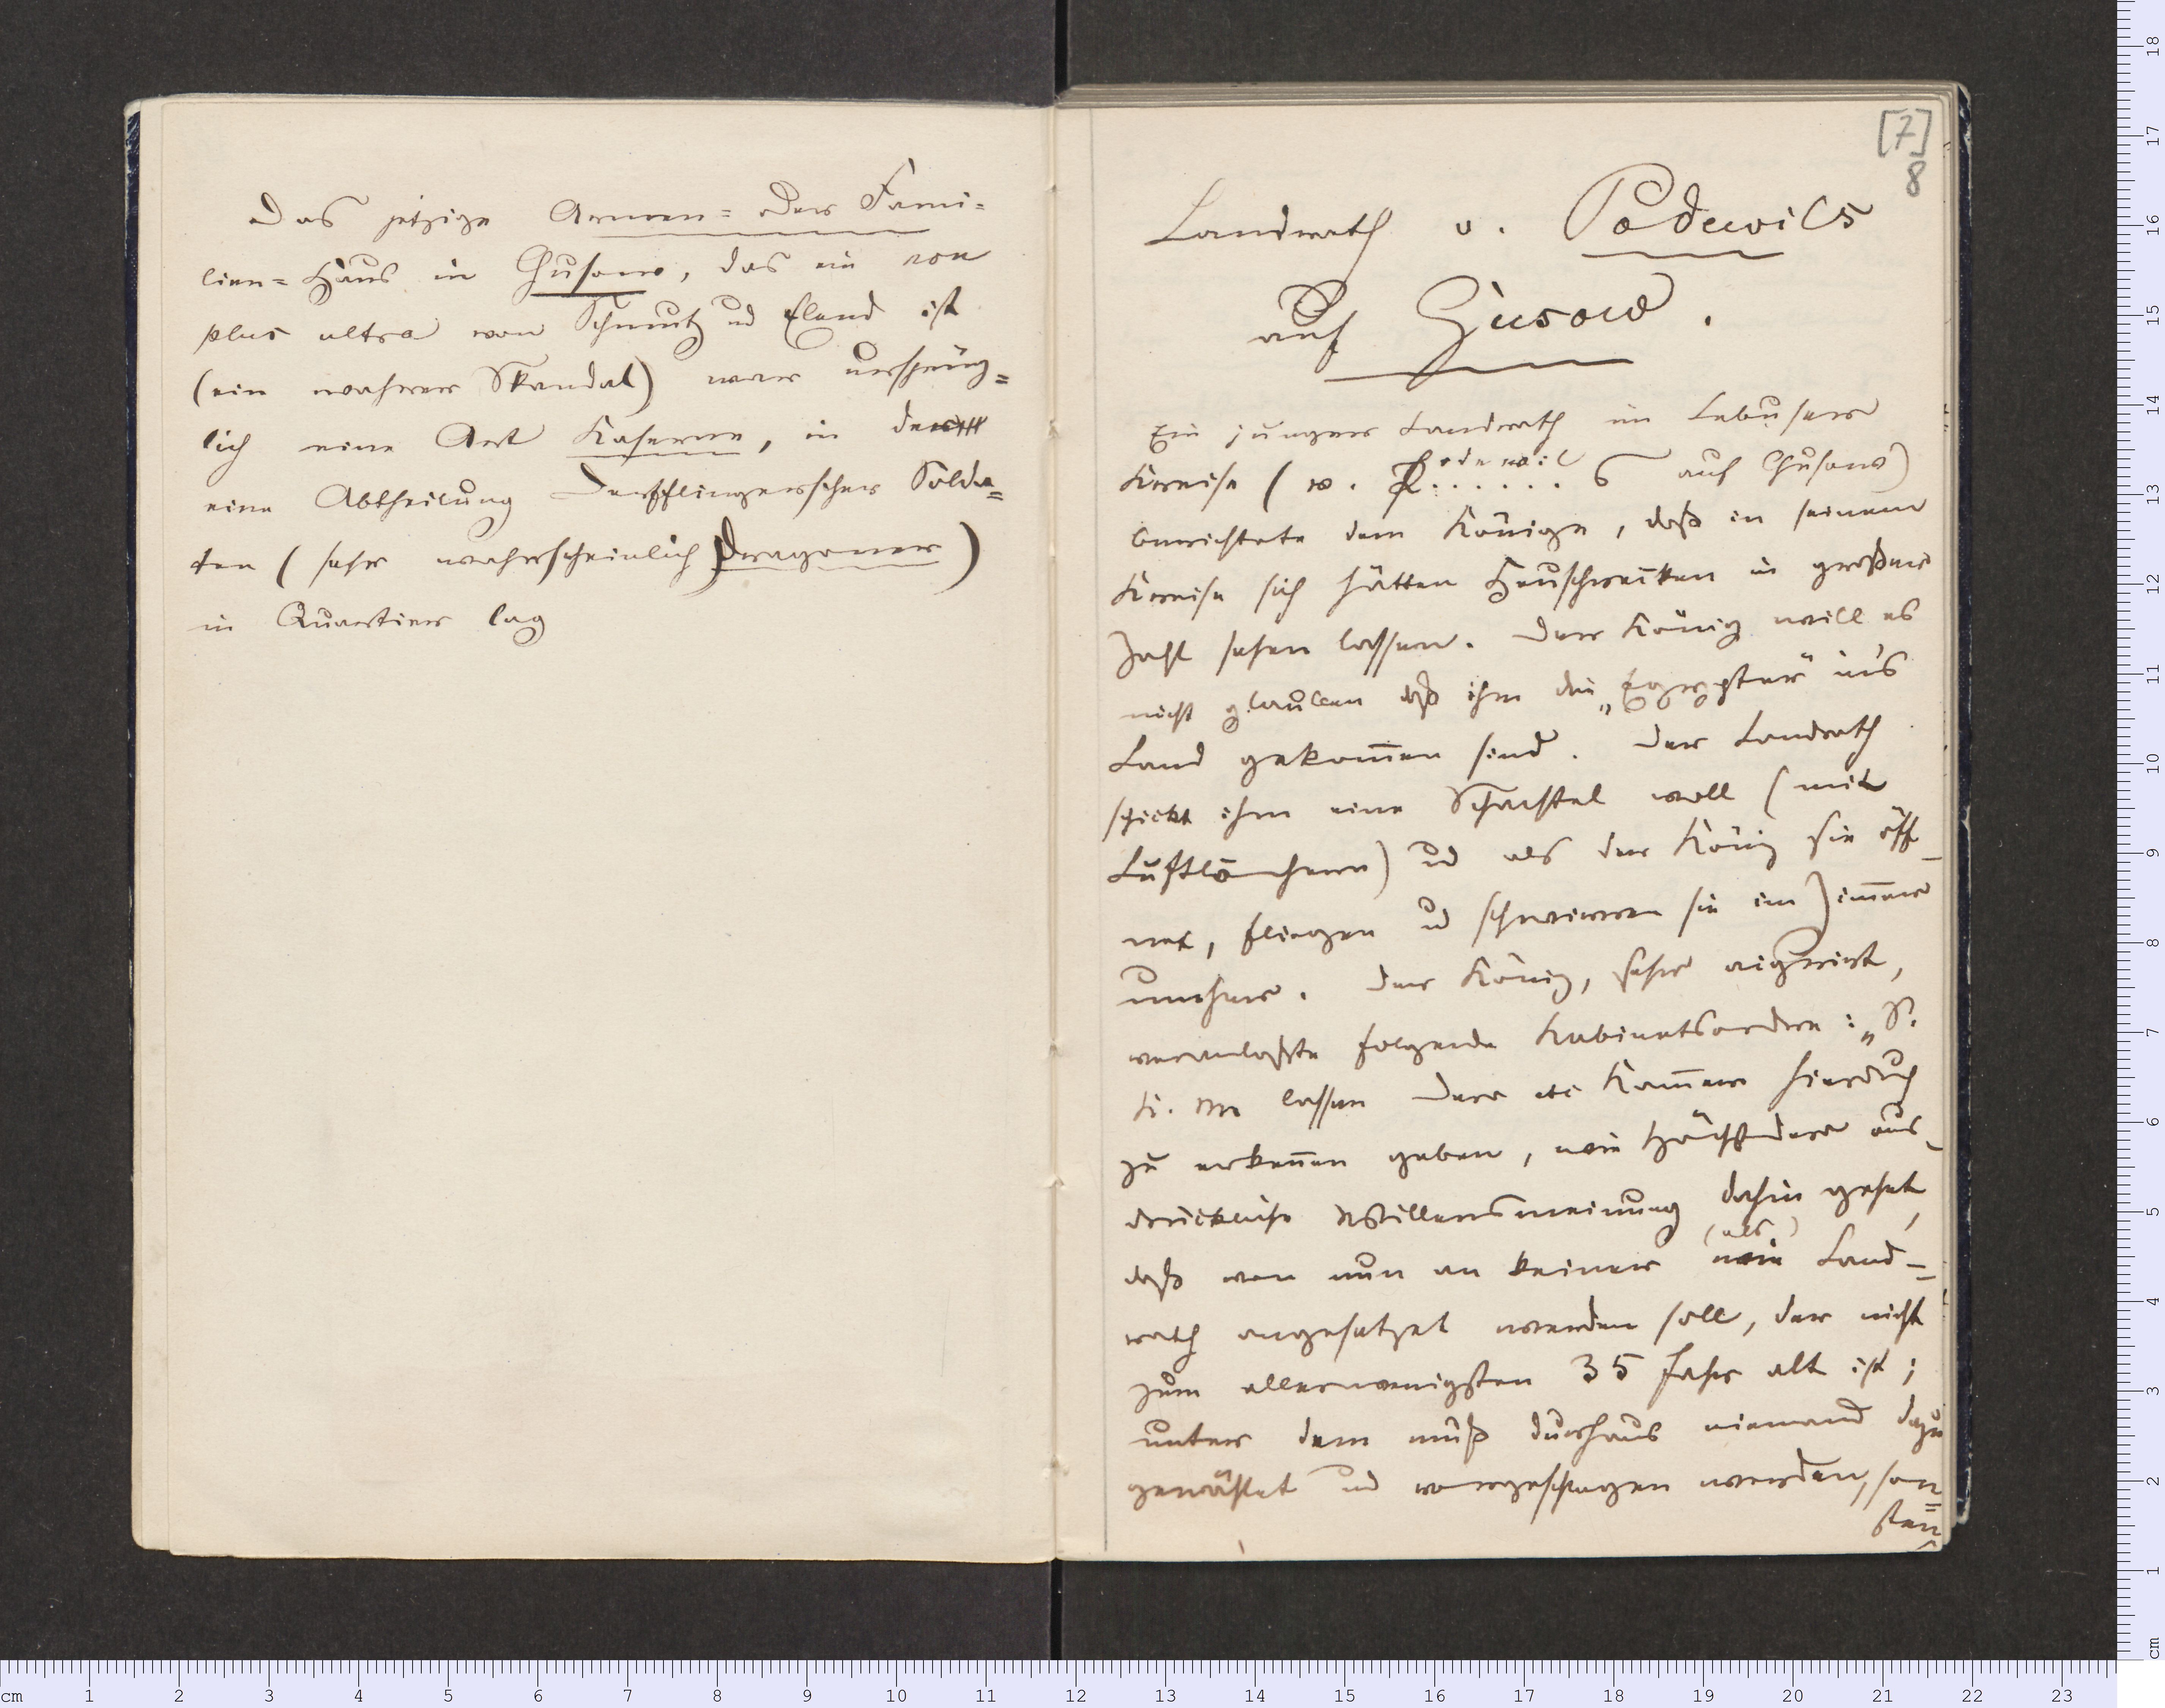 Das jetzige Armen= oder Fami=
lien=Haus in Gusow, das ein non
plus ultra von Schmutz ud Elend ist
(ein wahrer Skandal) war ursprüng=
lich eine Art Kaserne, in der
eine Abtheilung Derfflingerscher Solda=
ten (sehr wahrscheinlich Dragoner)
in Quartier lag
[7]
8
Landrath v. Podewils
auf Gusow.
Ein junger Landrath im Lebuser
Kreise (v. Podewils auf Gusow)
berichtete dem Könige, daß in seinem
Kreise sich hätten Heuschrecken in großer
Zahl sehen lassen. Der König will es
nicht glauben daß ihm die „Egypter" ins
Land gekom̄en sind. Der Landrath
schickt ihm eine Schachtel voll (mit
Luftlöchern) ud als der König sie öff-
net, fliegen ud schwirren sie im Zim̄er
umher. Der König, sehr pikirt,
veranlaßte folgende Kabinetsordre: „S.
K. M lassen Dero etc Kam̄er hierdurch
zu erken̄en geben, wie Höchstdero aus-
drückliche Willensmeinung dahin gehet,
daß von nun an keiner wie (als) Land-
rath angesetzet werden soll, der nicht
zum allerwenigsten 35 Jahr alt ist;
unter dem muß durchaus niemand dazu
gewählet ud vorgeschlagen werden, son=
sten